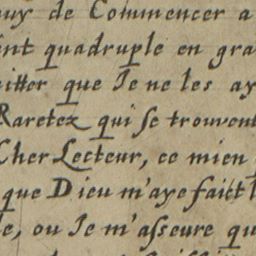 uy de Commencer a
int quadruple en gra
itter que Je ne les ay
Raretez qui se trouvent
Cher Lecteur, ce mien
que Dieu m'aye faict l
e, ou Je m'asseure qu